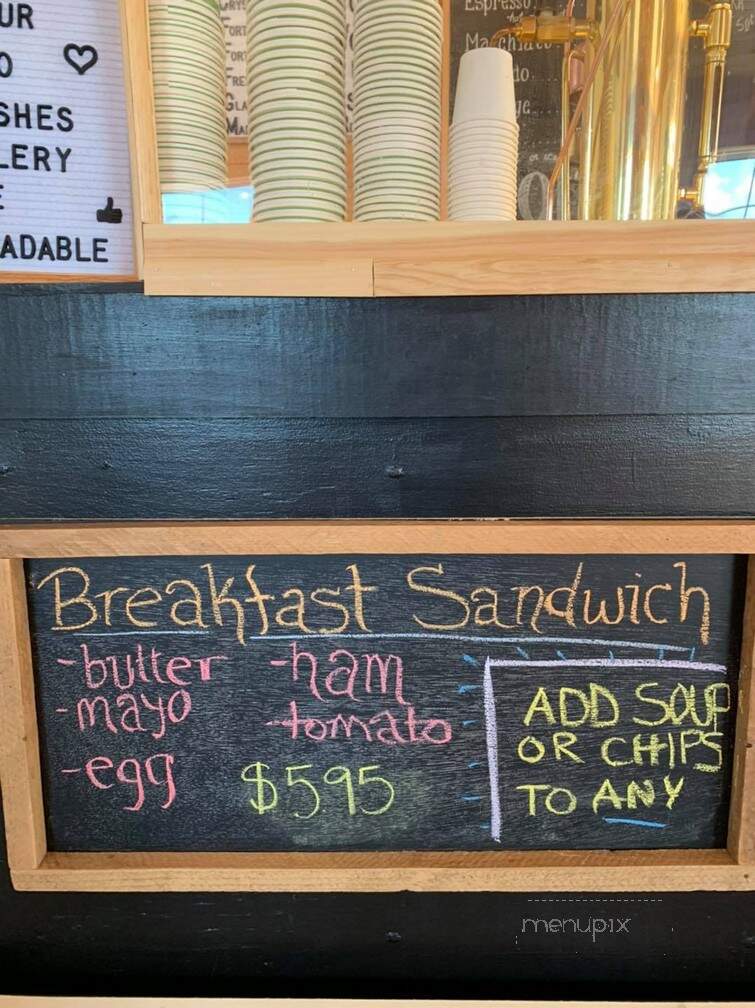 UR
O
SHES
LERY
E
ADABLE
Espresso
Macchiato
do
Breakfast Sandwich
-butter
-mayo
-egg
-ham
-tomato
$5.95
ADD SOUP
OR CHIPS
TO ANY
menupix